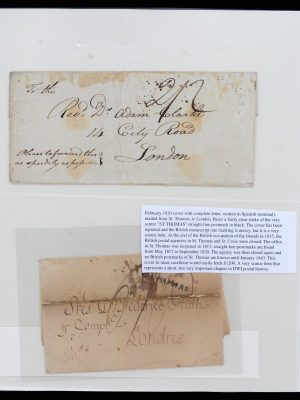 To the
Revd. Dr. Adam Clarke
14 City Road
London
Please to forward this
as speedily as possible
February 1820 cover with complete letter, written in Spanish (seminal),
mailed from St. Thomas, to London. Bears a fairly clear strike of the very
scarce "ST THOMAS" straight-line postmark in black. The cover has been
repaired and the British manuscript rate marking is messy, but it is a very
scarce item. At the end of the British occupation of the islands in 1815, the
British postal agencies in St Thomas and St. Croix were closed. The office
in St Thomas was reopened in 1817; straight-line postmarks are found
from May 1817 to September 1820. The agency was then closed again and
no British postmarks of St. Thomas are known until January 1843. This
cover in nicer condition would easily fetch $1200. A very scarce item that
represents a short, but very important chapter in DWI postal history.
THOMAS
Sres Dn Federico Huth
y Comp
Londres